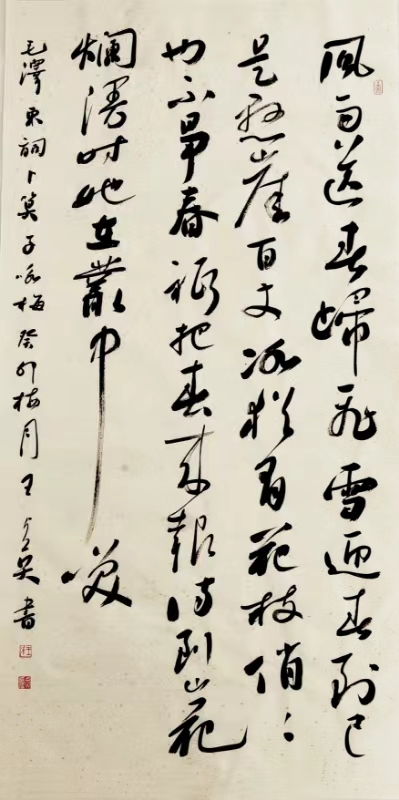 風雨送春歸飛雪迎春到已
是懸崖百丈冰猶有花枝俏〻
也不爭春祇把春來報待到山花
爛漫時她在叢中笑
毛澤東詞卜算子咏梅癸卯月王英書